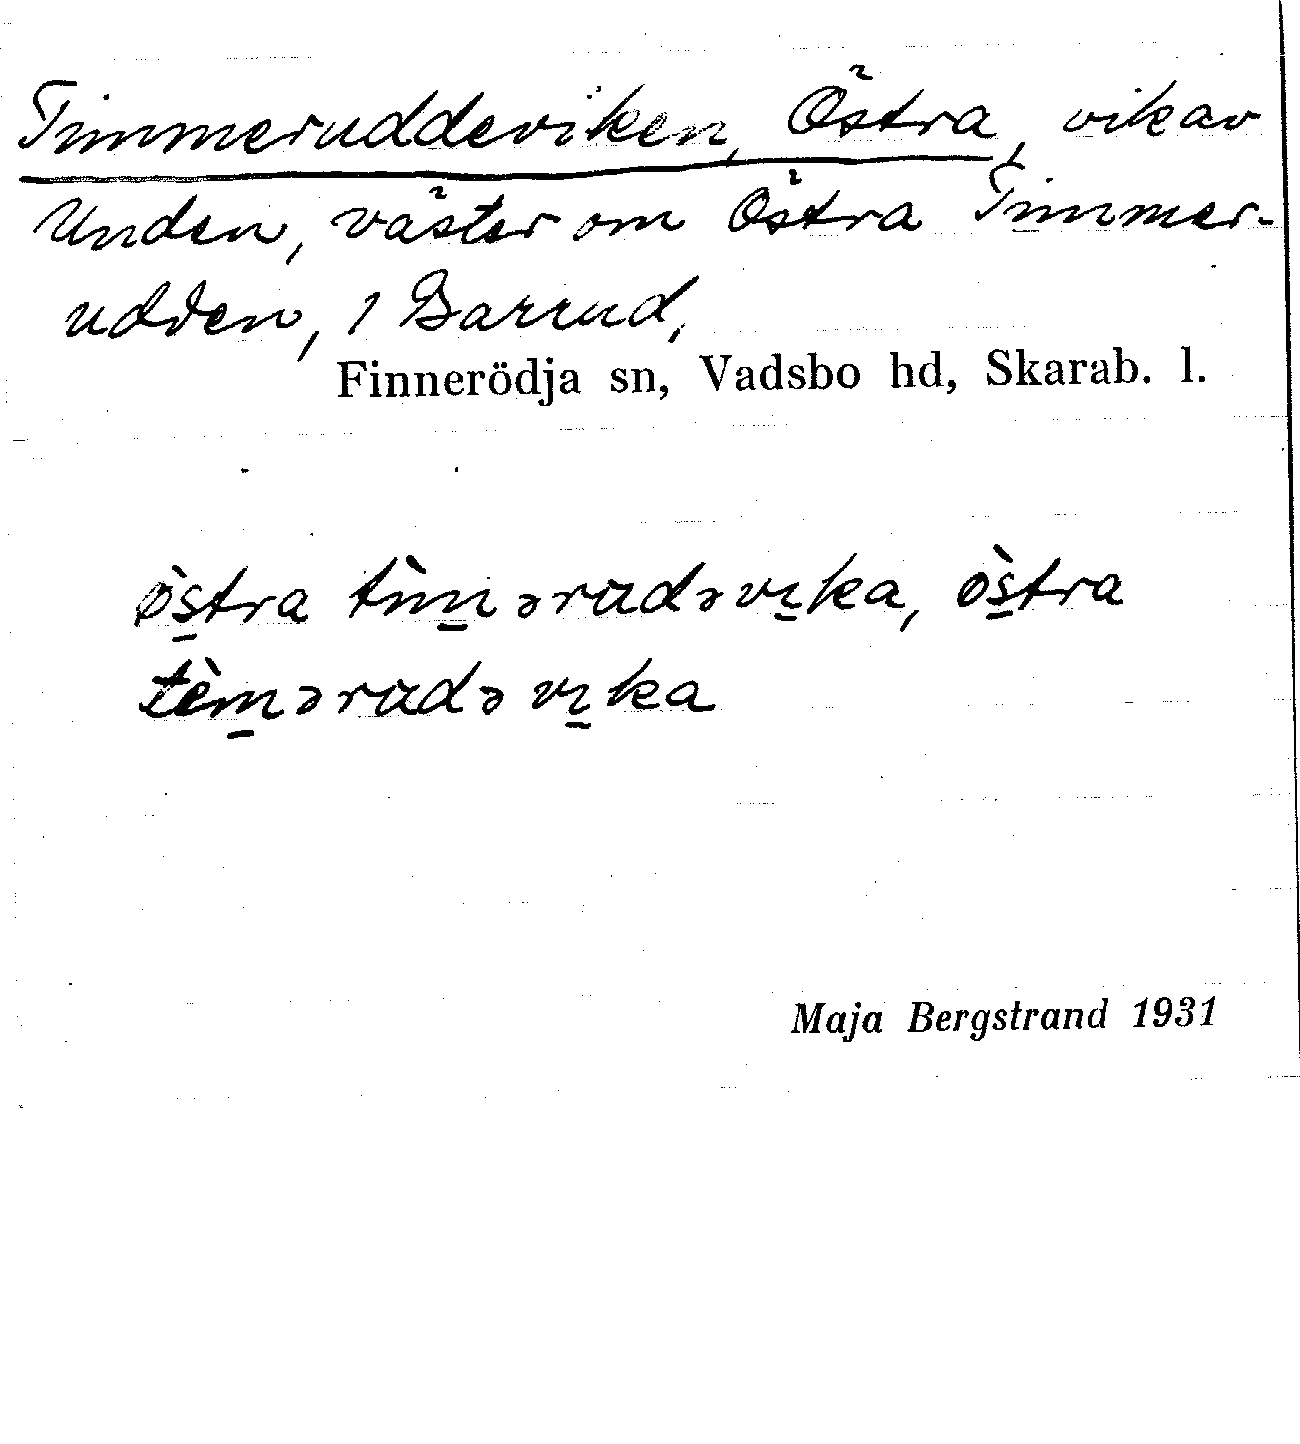 Timmeruddeviken, Östra, vik av
Unden, väster om Östra Timmer-
udden, i Barrud,
Finnerödja sn, Vadsbo hd, Skarab. l.
ös̱tra tìm̱əradəvɪ̱ka, ös̱tra
tèm̱əradəvɪ̱ka
Maja Bergstrand 1931